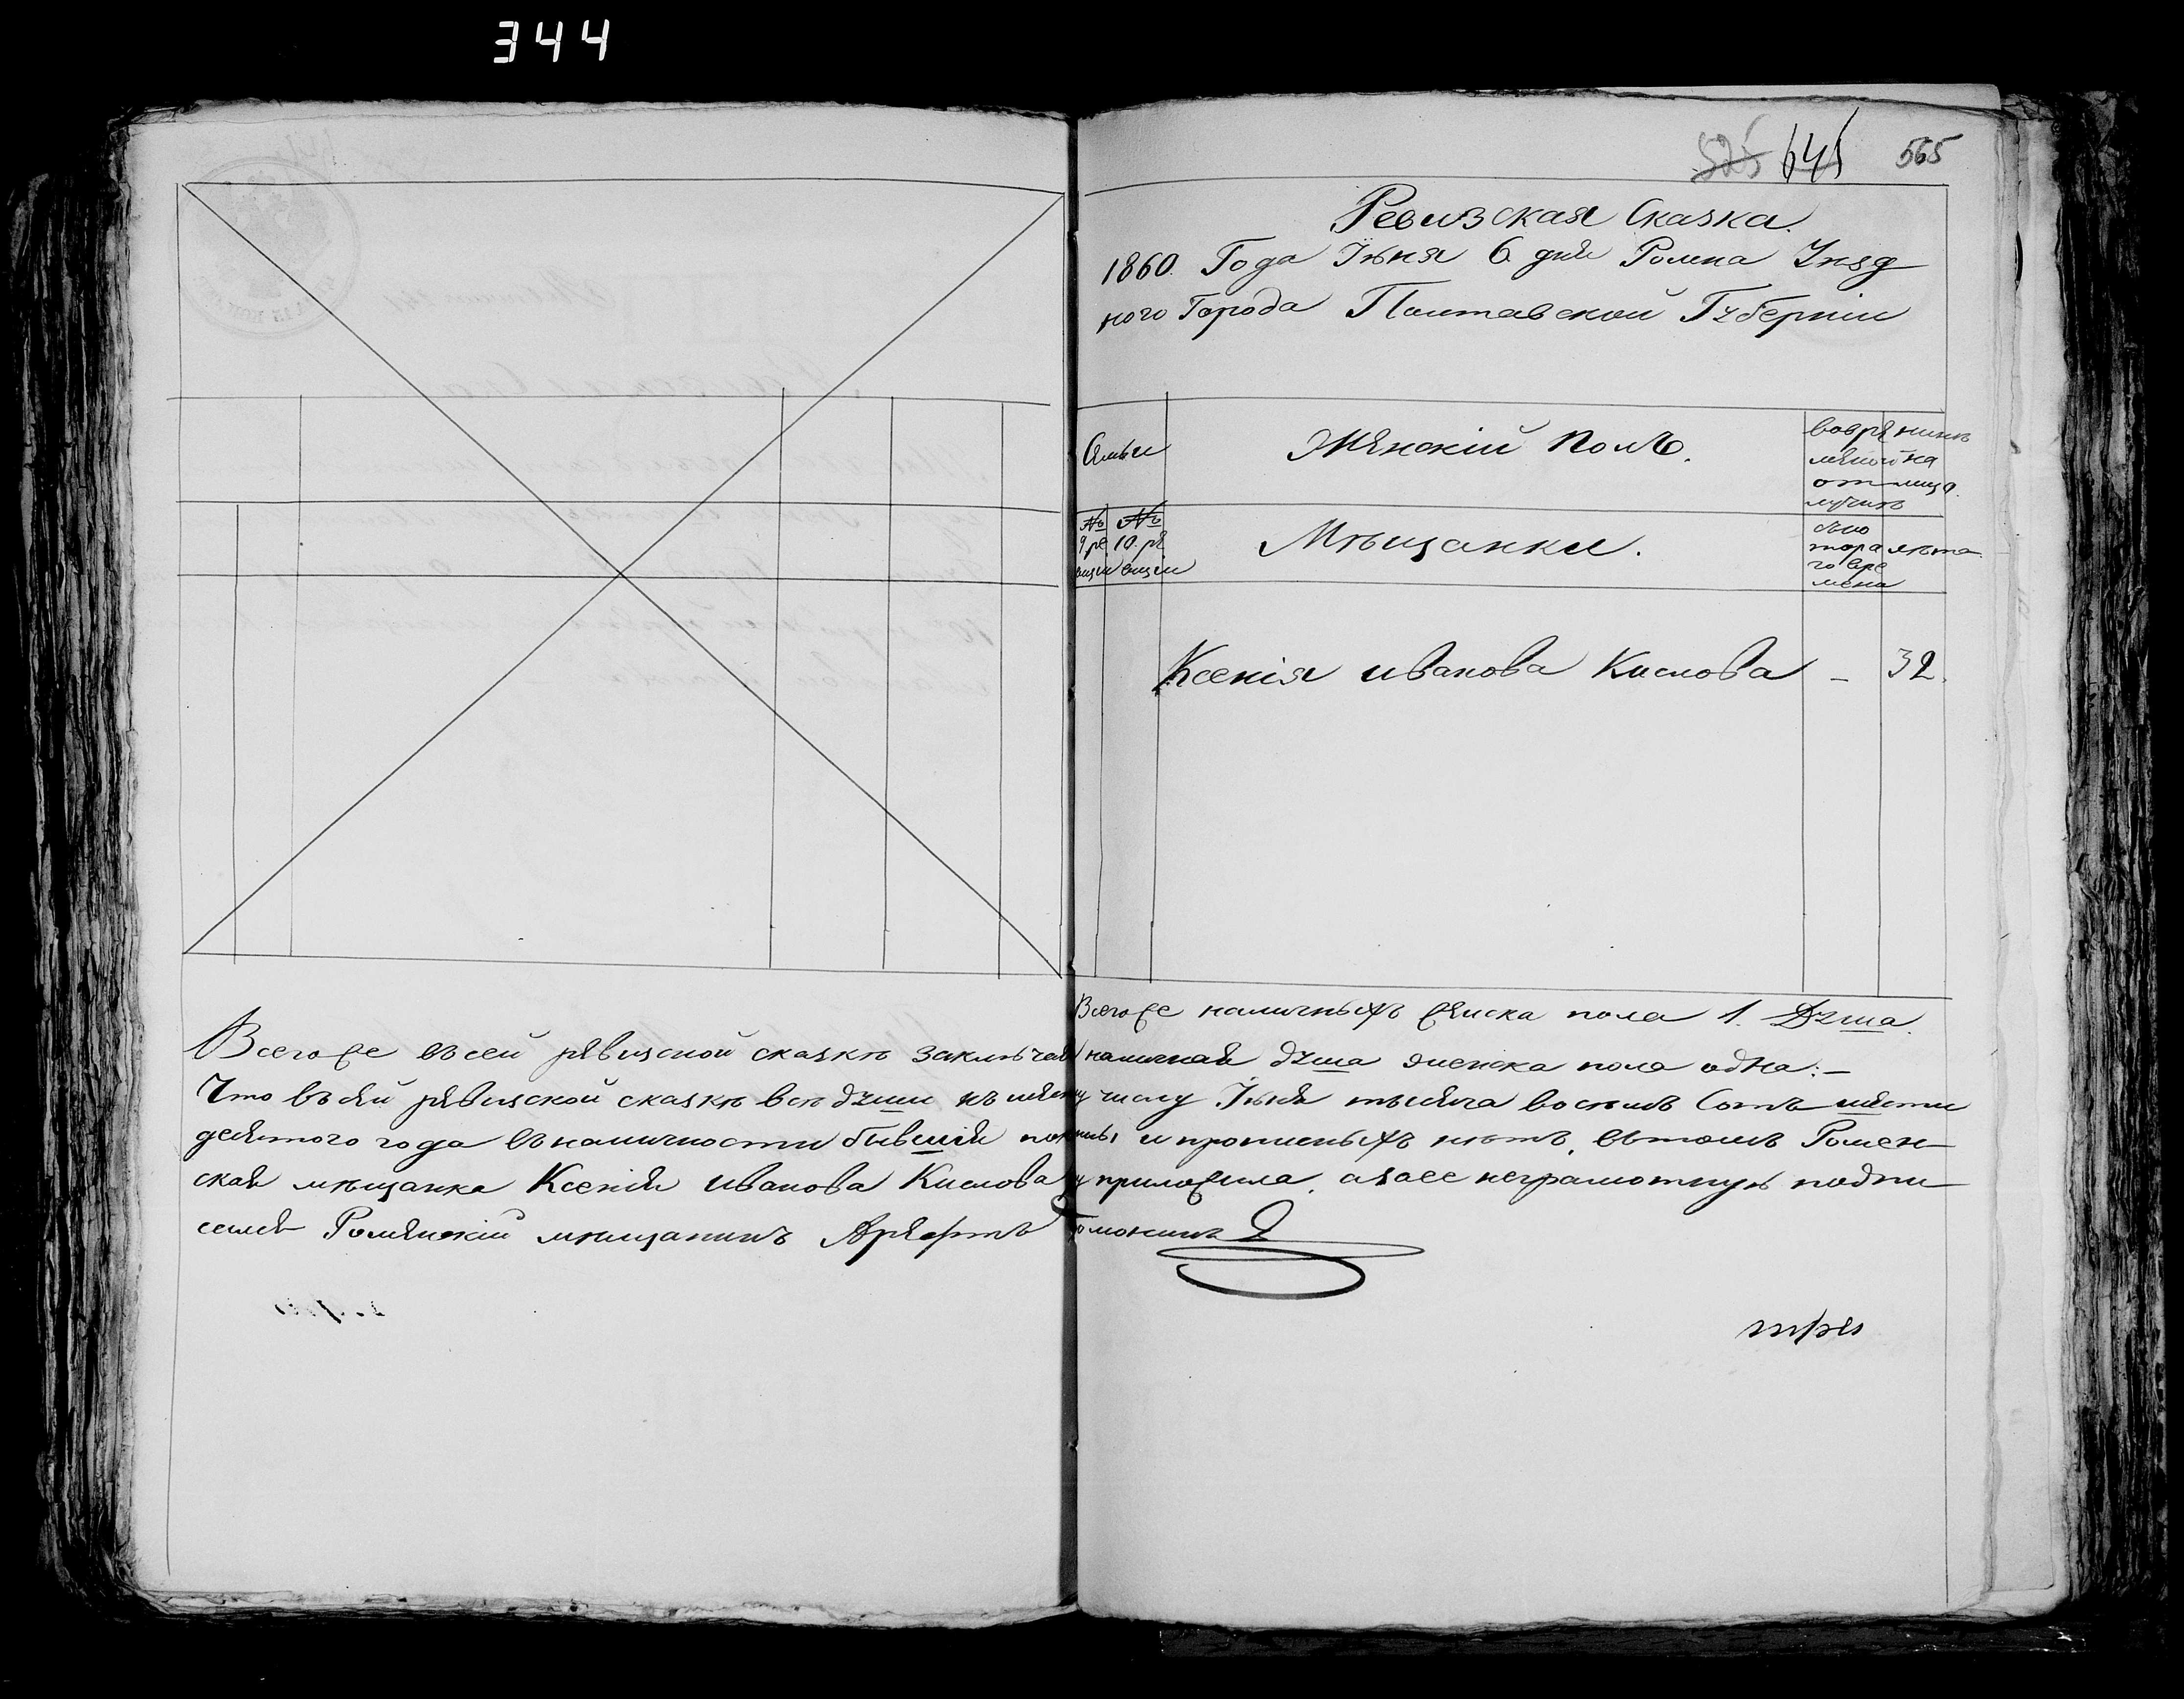 344
525 645 565
Ревизская Сказка.
1860. Года Іюня 6. дня Ромна Уезд
ного Города Полтавской Губерніи
Семьи
Женскій Полъ.
вовремянн
отлучкѣ
на лицо.
№ 9 ре визіи
№ 10. ре визіи
Мѣщанки.
съко тораго вре мени
лѣта
Ксенія иванова Кислова – 32.
Всего же наличныхъ женска пола 1. Душа.
Всего же въ сей ревизской сказкѣ заключает наличная душа женска пола одна:–
Что въ сей ревизской сказкѣ всѣ души къ числу Іюня тысяча восемь Сотъ шести
десятого года въ наличности бывшія и прописныхъ нѣтъ, въ томъ Ромен
ская мѣщанка Ксенія иванова Кислова приложила. а за ее неграмотную подпи
сался Роменскій мѣщанинъ